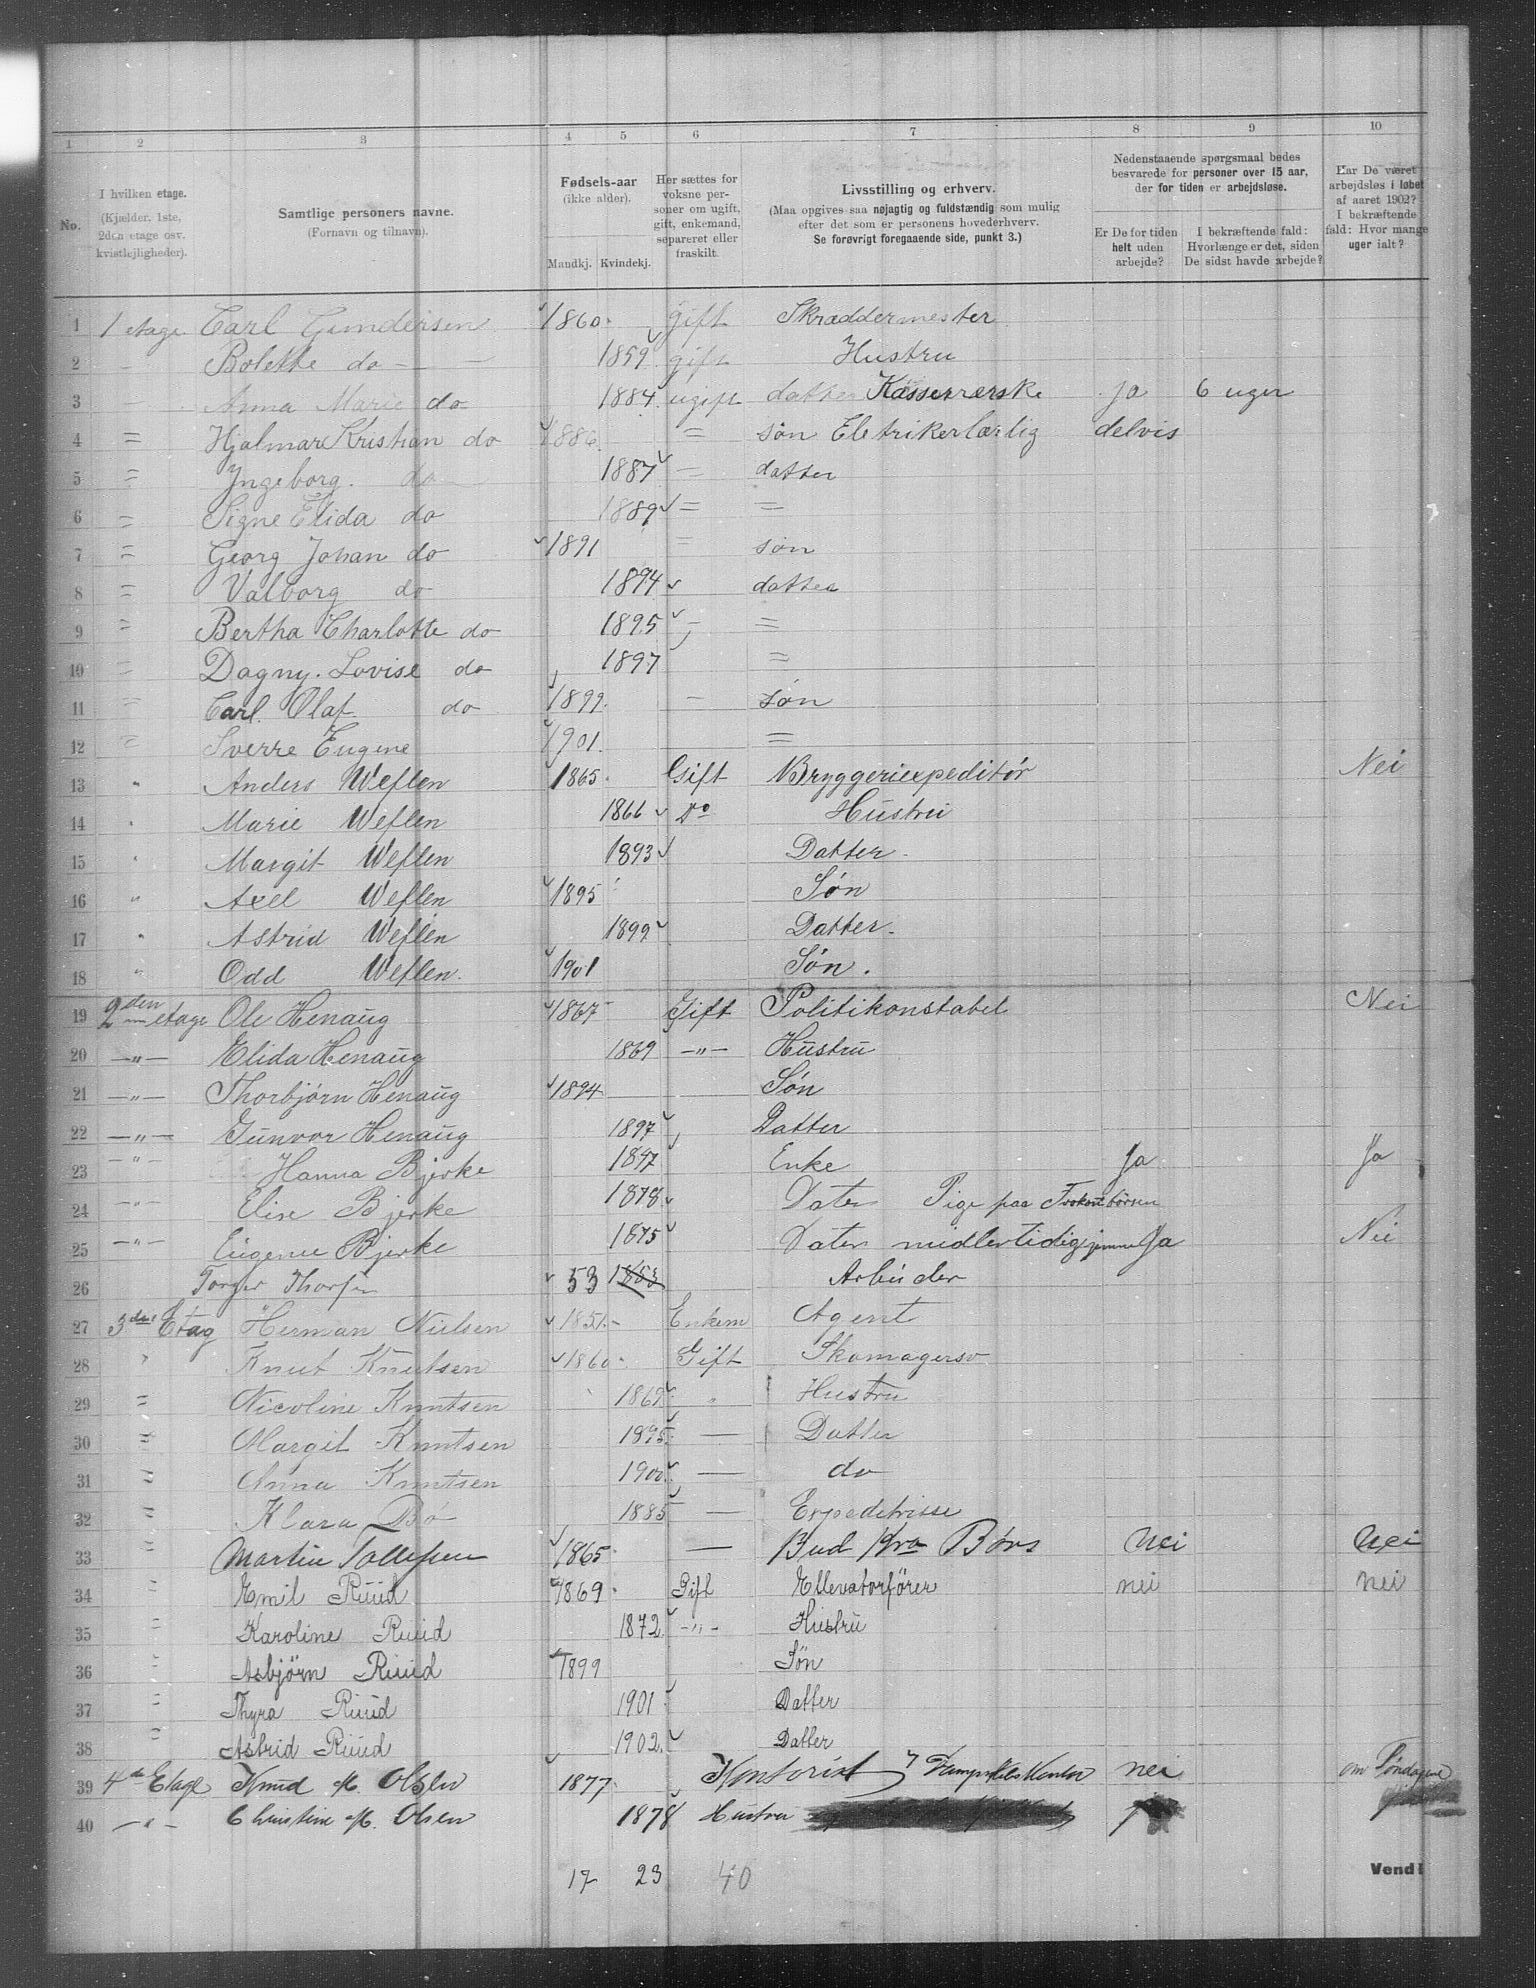 1 2 3 4 5 6 7 8 9 10
No.
I hvilken etage. (Kjælder, 1ste, 2den etage osv. kvistlejligheder).
Samtlige personers navne. (Fornavn og tilnavn).
Fødsels-aar (ikke alder). Mandkj. Kvindekj.
Her sættes for voksne personer om ugift, gift, enkemand, separeret eller fraskilt.
Livsstilling og erhverv. (Maa opgives saa nøjagtig og fuldstændig som mulig efter det som er personens hovederhverv. Se forøvrigt foregaaende side, punkt 3.)
Nedenstaaende spørgsmaal bedes besvarede for personer over 15 aar, der for tiden er arbejdsløse.
Er De for tiden helt uden arbejde?
I bekræftende fald: Hvorlænge er det, siden De sidst havde arbejde?
Har De været arbejdsløs i løbet af aaret 1902? I bekræftende fald: Hvor mange uger ialt?
1 1 etage Carl Gundersen 1860 gift Skræddermester
2 Bolette do 1859 gift Hustru
3 Anna Marie do 1884 ugift datter Kasserrerske ja 6 uger
4 = Hjalmar Kristian do 1886 = søn Eletrikerlærlig delvis
5 = Jngeborg. do 1887 = datter
6 = Signe Elida do 1889 = =
7 = Georg Johan do 1891 = søn
8 = Valborg do 1894 datter
9 = Bertha Charlotte do 1895 = =
10 = Dagny. Lovise do 1897 =
11 = Carl. Olaf do 1899 - søn
12 = Sverre Eugene 1901 =
13 " Anders Weflen 1865 Gift Bryggeriexpeditør Nei
14 " Marie Weflen 1866 Do Hustru
15 " Margit Weflen 1893 Datter
16 " Axel Weflen 1895 Søn
17 " Astrid Weflen 1899 Datter.
18 " Odd Weflen. 1901 Søn.
19 2den etage Ole Henaug 1867 Gift Politikonstabel Nei
20 —"— Elida Henaug 1869 —"— Hustru
21 —"— Thorbjørn Henaug 1894 Søn
22 —"— Gunvor Henaug 1897 Datter
23 —"— Hanna Bjerke 1847 Enke Ja Ja
24 —"— Elise Bjerke 1878 Dater Pige paa
25 —"— Eugenie Bjerke 1875 Dater midlertidig hjemme Ja Nei
26 Torger 53 1853 Arbeider
27 3die Etag Herman Nielsen 1851 Enkem Agent
28 " Knut Knutsen 1860 Gift Skomagersv
29 = Nicoline Knutsen 1869 " Hustru
30 = Margit Knutsen 1895 — Datter
31 = Anna Knutsen 1900 — do
32 = Klara Bø 1885 — Expeditrisse
33 " Martin Tollefsen 1865 — Bud Kra Børs Nei Nei
34 = Emil Ruud 1869 Gift Ellevatorfører nei nei
35 = Karoline Ruud 1872 —"— Hustru
36 = Asbjørn Ruud 1899 Søn
37 = Thyra Ruud 1901 Datter
38 = Astrid Ruud 1902 Datter
39 4de Etage Knud M. Olsen 1877 Kontorist nei om Søndagene
40 —"— Christine M. Olsen 1878 Hustru
17 23 40
Vend!